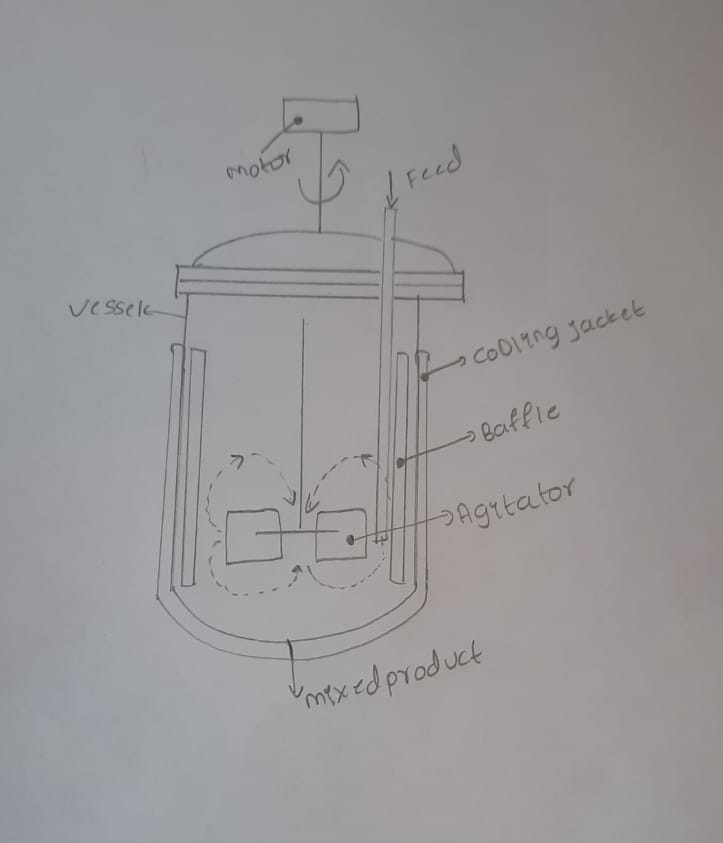 motor
Feed
vessel
cooling jacket
Baffle
Agitator
mixed product